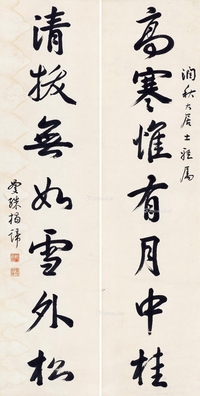 潤秋大居士雅屬
高寒惟有月中桂
清拔無如雪外松
曼殊揭諦